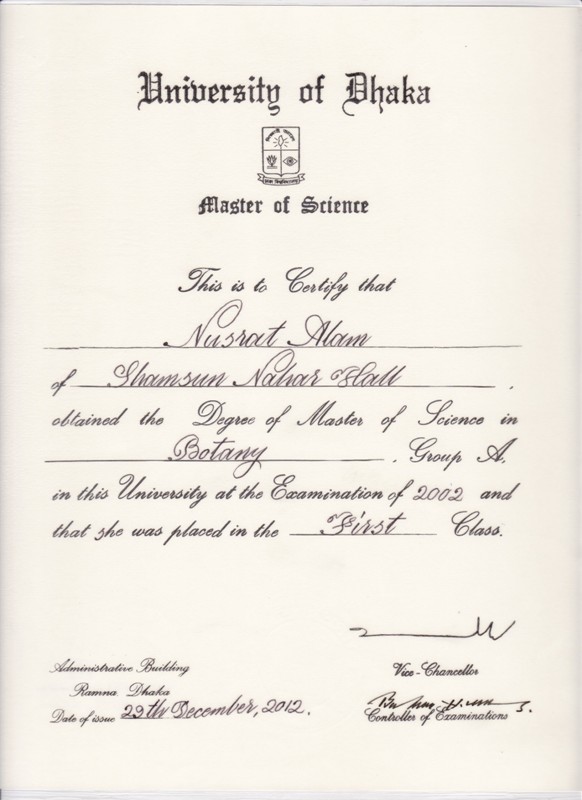 University of Dhaka
Master of Science
This is to Certify that
Nusrat Alam
of Shamsun Nahar Hall .
obtained the Degree of Master of Science in
Botany . Group A.
in this University at the Examination of 2002 and
that she was placed in the First Class.
Administrative Building
Ramna Dhaka
Date of issue 29th December, 2012.
Vice-Chancellor
Controller of Examinations